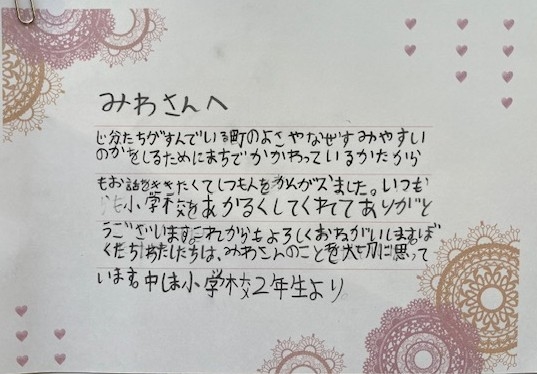 みわさんへ
じ分たちがすんでいる町のよさやなぜすみやすい
のかをしるためにまちでかかわっているかたから
もお話をききたくてしつもんをかんがえました。いつも
も小学校をあかるくしてくれてありがと
うございます。これからもよろしくおねがいします。ぼ
くたちわたしたちは、みわさんのことを大切に思って
います。中しま小学校2年生より